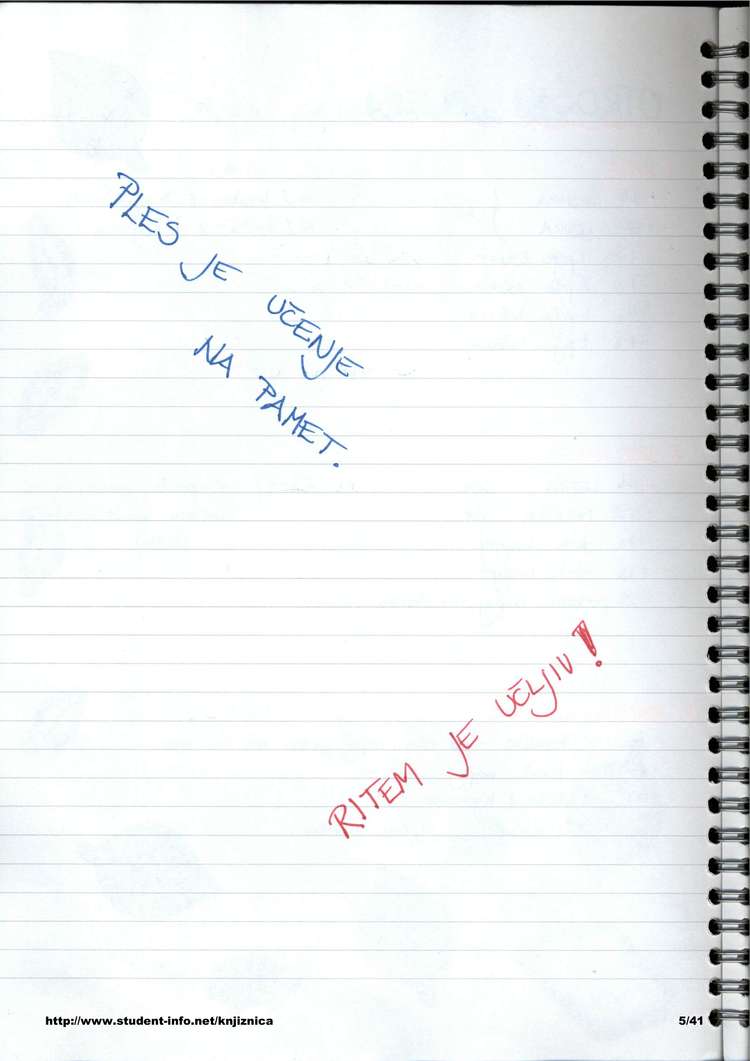 PLES JE UČENJE
NA PAMET.
RITEM JE UČLJIV!
http://www.student-info.net/knjiznica
5/41